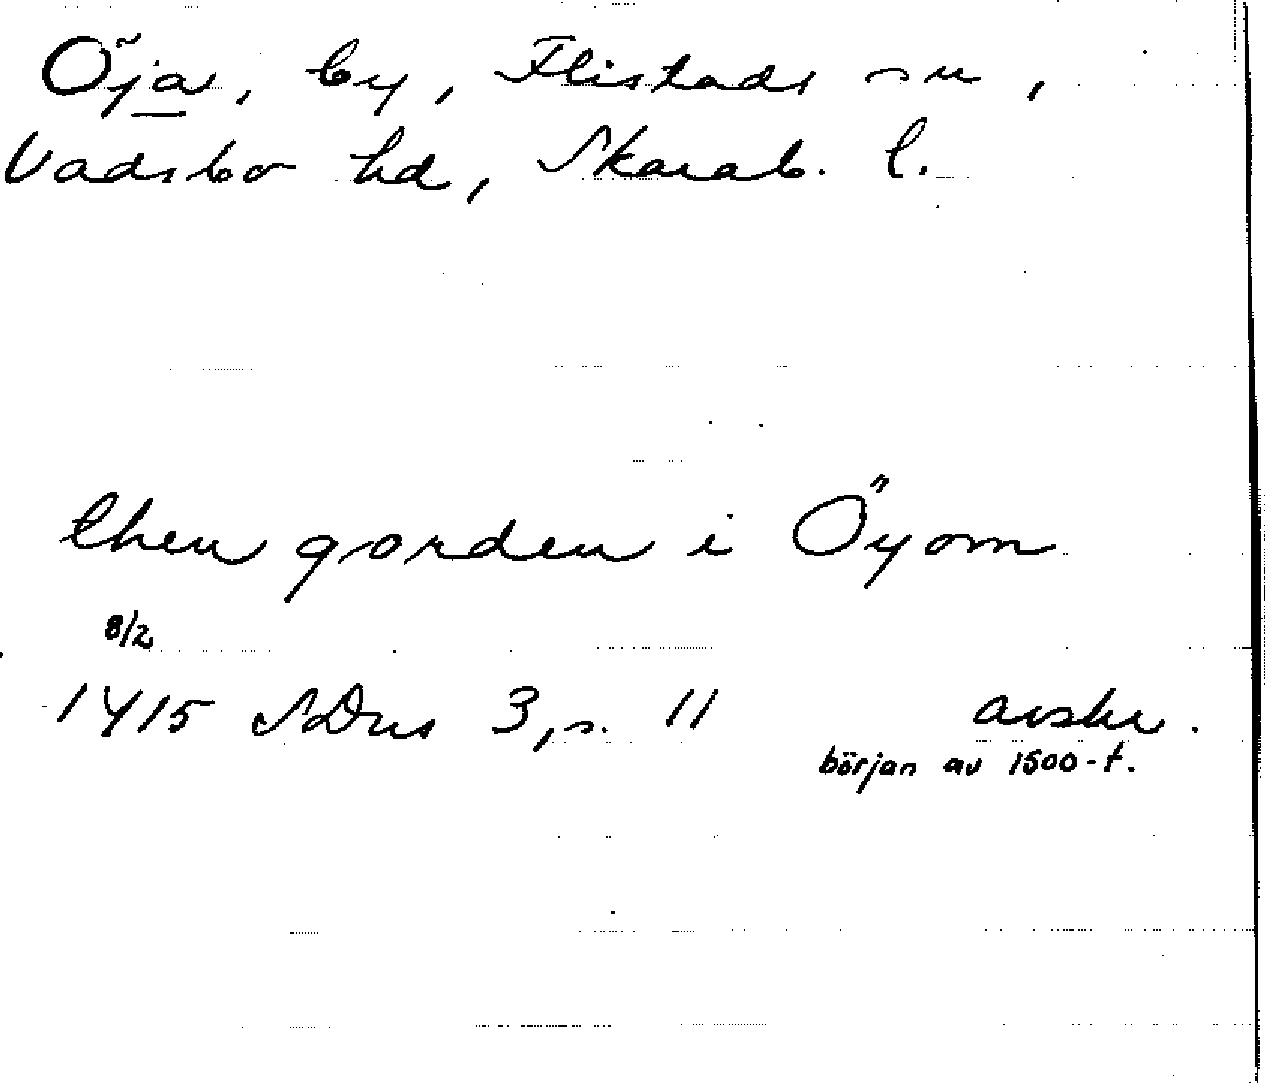 Öja, by, Flistads sn,
Vadsbo hd, Skarab. l.
then gorden i Öyom
8/2
1415 SDns 3, s. 11 avskr.
början av 1500-t.